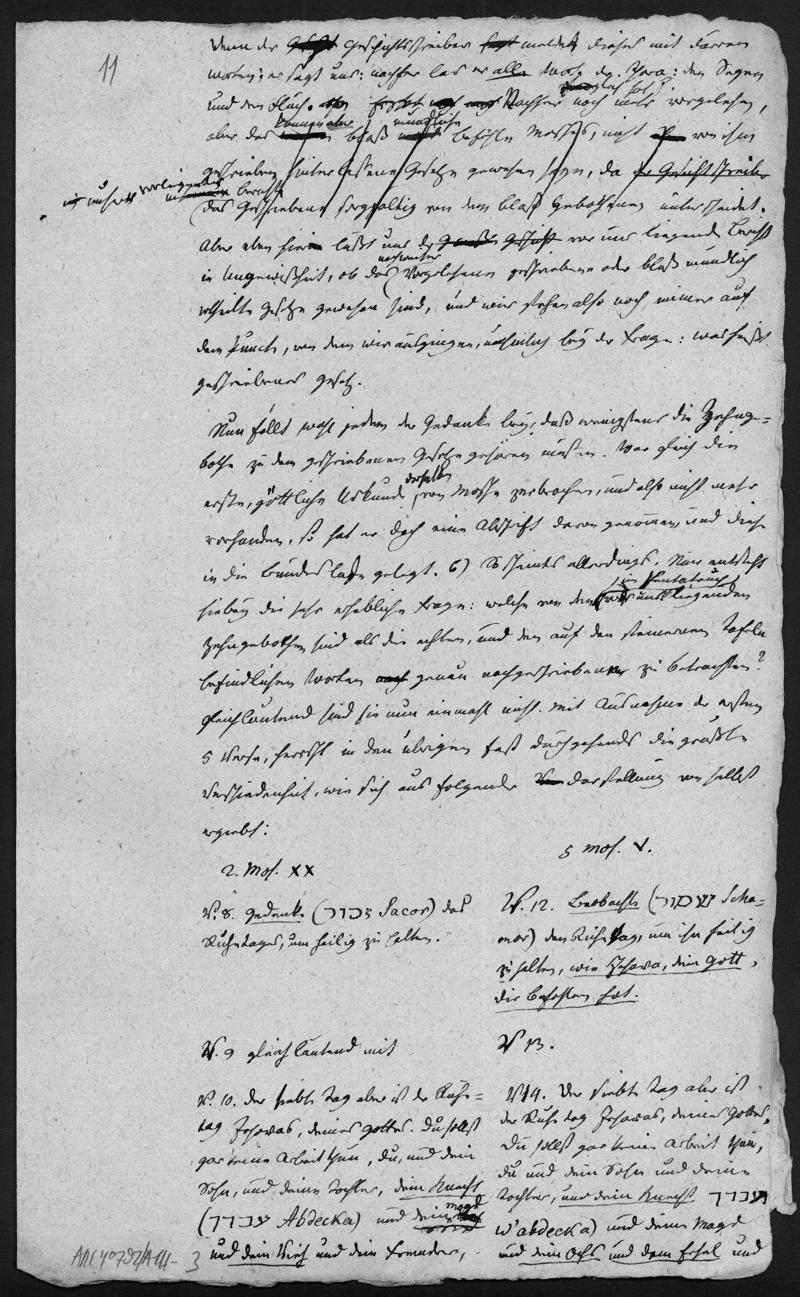 11
Denn der Geschichtschreiber meldet dieses mit dürren
Worten; er sagt uns: nachher las er alle Worte der Thora: den Segen
und den Fluch. Nachher noch mehr vorgelesen,
aber das bloß mündliche befohlne Mosches, nicht von ihm
geschrieben hinterlassene Gesetze gewesen seyn, da der Geschichtschreiber
in unserm vorliegenden Bericht
das Geschriebene sorgfältig von dem bloß Gebothenen unterscheidet.
Aber eben hierin läßt uns der vor uns liegende Bericht
in Ungewißheit, ob das Vorgelesene geschriebene oder bloß mündlich
ertheilte Gesetze gewesen sind, und wir stehen also noch immer auf
dem Punct, von dem wir ausgingen, nähmlich bey der Frage: was heißt
geschriebenes Gesetz.
Nun fällt wohl jedem der Gedanke bey, daß wenigstens die Zehnge-
bothe zu dem geschriebenen Gesetze gehören müßen. War gleich die
erste, göttliche Urkunde derselben von Mosche zerbrochen, und also nicht mehr
vorhanden, so hat er doch eine Abschrift davon genommen, und diese
in die Bundeslade gelegt. 6) So scheints allerdings. Nur entsteht
hiebey die sehr erhebliche Frage: welche von den im Pentateuch uns liegenden
Zehngebothen sind als die echten, und den auf den steinernen Tafeln
befindlichen Worten genau nachgeschriebenen zu betrachten?
Gleichlautend sind sie nun einmahl nicht. Mit Ausnahme der ersten
5 Verse, herrscht in den übrigen fast durchgehends die größte
Verschiedenheit, wie sich aus folgender Darstellung von selbst
ergiebt:
2. Mos. XX
V. 8. Gedenke (זכור Sacor) des
Ruhetages, um heilig zu halten.
V. 9 gleichlautend mit
V. 10. Der siebte Tag aber ist der Ruhe-
tag Jehovas, deines Gottes. Du sollst
gar keine Arbeit thun, du, und dein
Sohn, und deine Tochter, dein Knecht
(עבדך Abdecka) und deine Magd
und dein Vieh und dein Fremder,
5 Mos. V.
V. 12. Beobachte (שמור Scha-
mor) den Ruhetag, um ihn heilig
zu halten, wie Jehova, dein Gott,
dir befohlen hat.
V 13.
V 14. Der siebte Tag aber ist
der Ruhetag Jehovas, deines Gottes,
du sollst gar keine Arbeit thun,
du und dein Sohn und deine
Tochter, und dein Knecht ועבדך
W'abdecka) und deine Magd
und dein Ochs und dein Esel und
3